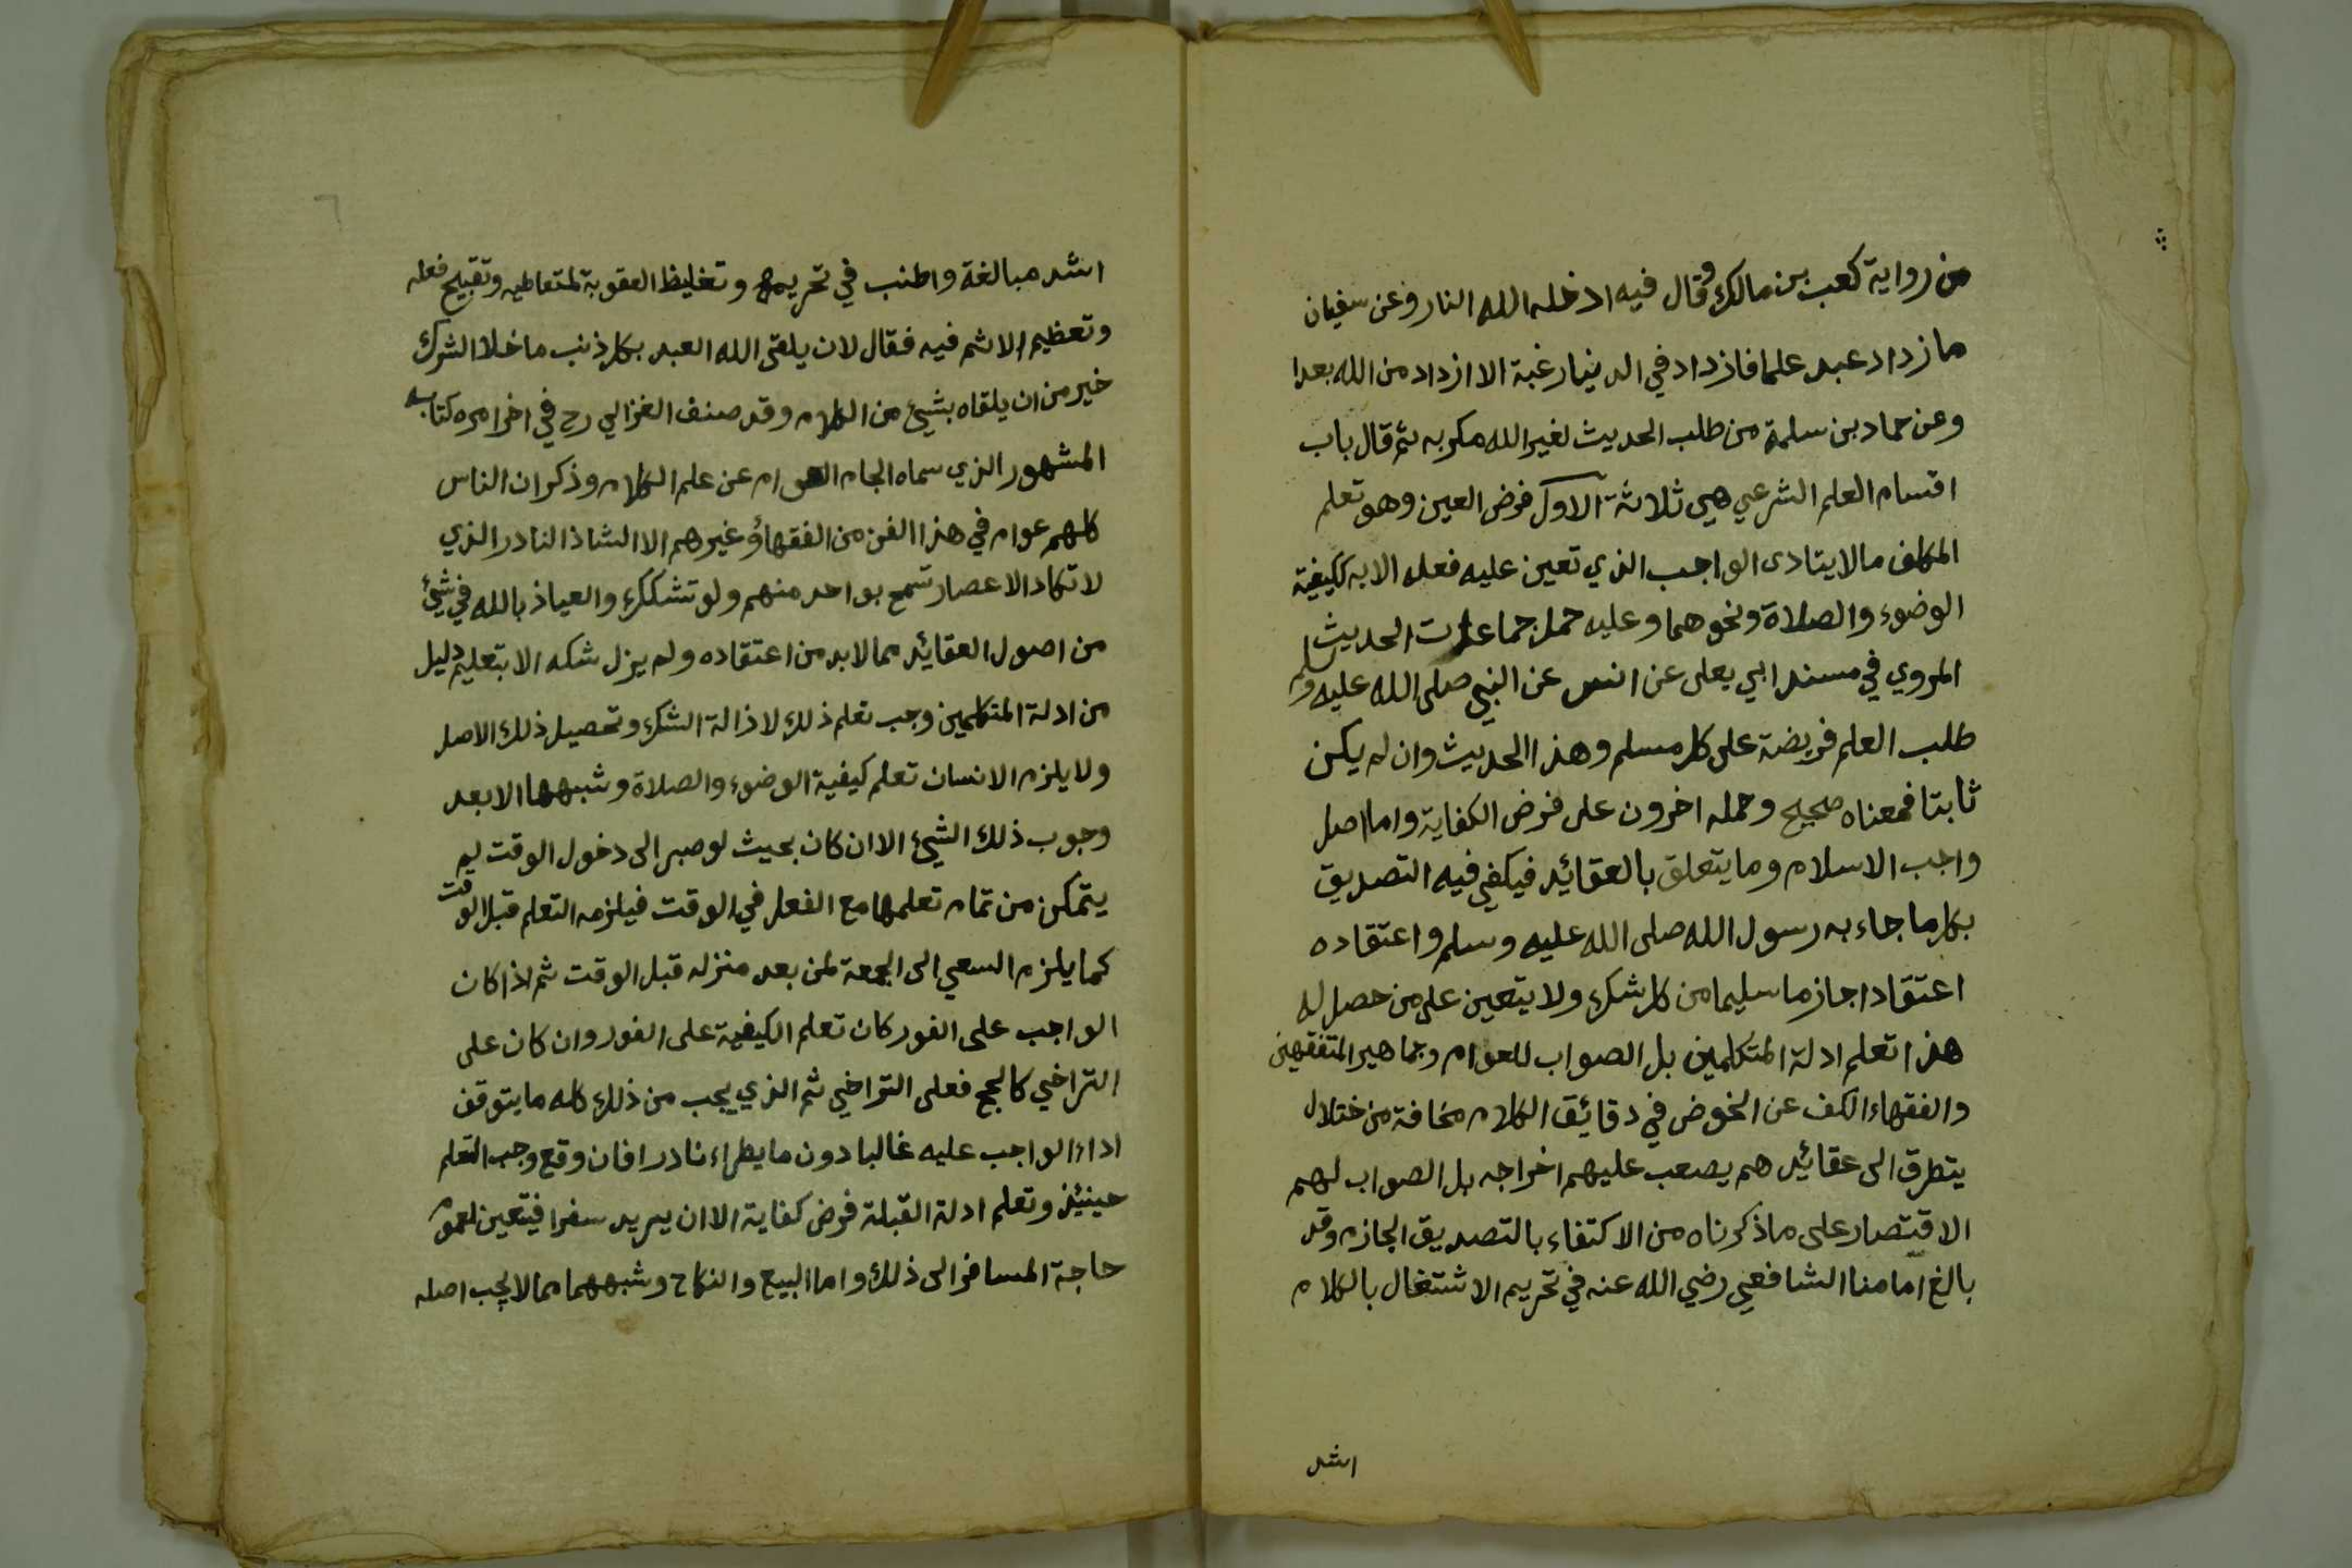 من رواية كعب بن مالك وقال فيه ادخله الله النار وعن سفيان
ما زداد عبد علما فازداد في الدنيا رغبة الا ازداد من الله بعدا
وعن حماد بن سلمة من طلب الحديث لغير الله مكر به ثم قال باب
اقسام العلم الشرعي هي ثلاثة الاول فرض العين وهو تعلم
المكلف مالا يتادى الواجب الذي تعين عليه فعله الا به ككيفية
الوضوء والصلاة ونحوهما وعليه حمل جماعات الحديث
المروي في مسند ابي يعلى عن انس عن النبي صلى الله عليه وسلم
طلب العلم فريضة على كل مسلم وهذا الحديث وان لم يكن
ثابتا فمعناه صحيح وحمله اخرون على فرض الكفاية واما اصل
واجب الاسلام وما يتعلق بالعقائد فيكفي فيه التصديق
بكل ما جاء به رسول الله صلى الله عليه وسلم واعتقاده
اعتقادا جازما سليما من كل شك ولا يتعين على من حصل له
هذا تعلم ادلة المتكلمين بل الصواب للعوام وجماهير المتفقهين
والفقهاء الكف عن الخوض في دقائق الكلام مخافة من ختلال
يتطرق الى عقائد هم يصعب عليهم اخراجه بل الصواب لهم
الاقتصار على ما ذكرناه من الاكتفاء بالتصديق الجازم وقد
بالغ امامنا الشافعي رضي الله عنه في تحريم الاشتغال بالكلام
اشد
٦
اشد مبالغة واطنب في تحريمه وتغليظ العقوبة لمتعاطيه وتقبيح فعله
وتعظيم الاثم فيه فقال لان يلقى الله العبد بكل ذنب ما خلا الشرك
خير من ان يلقاه بشيئ من الكلام وقد صنف الغزالي رح في اخر امره كتابه
المشهور الذي سماه الجام العوام عن علم الكلام وذكر ان الناس
كلهم عوام في هذا الفن من الفقهاء وغيرهم الا الشاذ النادر الذي
لا تكاد الاعصار تسمع بواحد منهم ولو تشكك والعياذ بالله في شيئ
من اصول العقائد مما لابد من اعتقاده ولم يزل شكه الا بتعليم دليل
من ادلة المتكلمين وجب تعلم ذلك لاذالة الشك وتحصيل ذلك الاصل
ولا يلزم الانسان تعلم كيفية الوضوء والصلاة وشبهها الا بعد
وجوب ذلك الشيئ الا ان كان بحيث لو صبر الى دخول الوقت لم
يتمكن من تمام تعلمها مع الفعل في الوقت فيلزمه التعلم قبل الوقت
كما يلزم السعي الى الجمعة لمن بعد منزله قبل الوقت ثم اذا كان
الواجب على الفور كان تعلم الكيفية على الفور وان كان على
التراخي كالحج فعلى التراخي ثم الذي يجب من ذلك كله ما يتوقف
اداء الواجب عليه غالبا دون ما يطراء نادرا فان وقع وجب التعلم
حينئذ وتعلم ادلة القبلة فرض كفاية الا ان يريد سفرا فيتعين لعموم
حاجة المسافر الى ذلك واما البيع والنكاح وشبههما مما لا يجب اصله